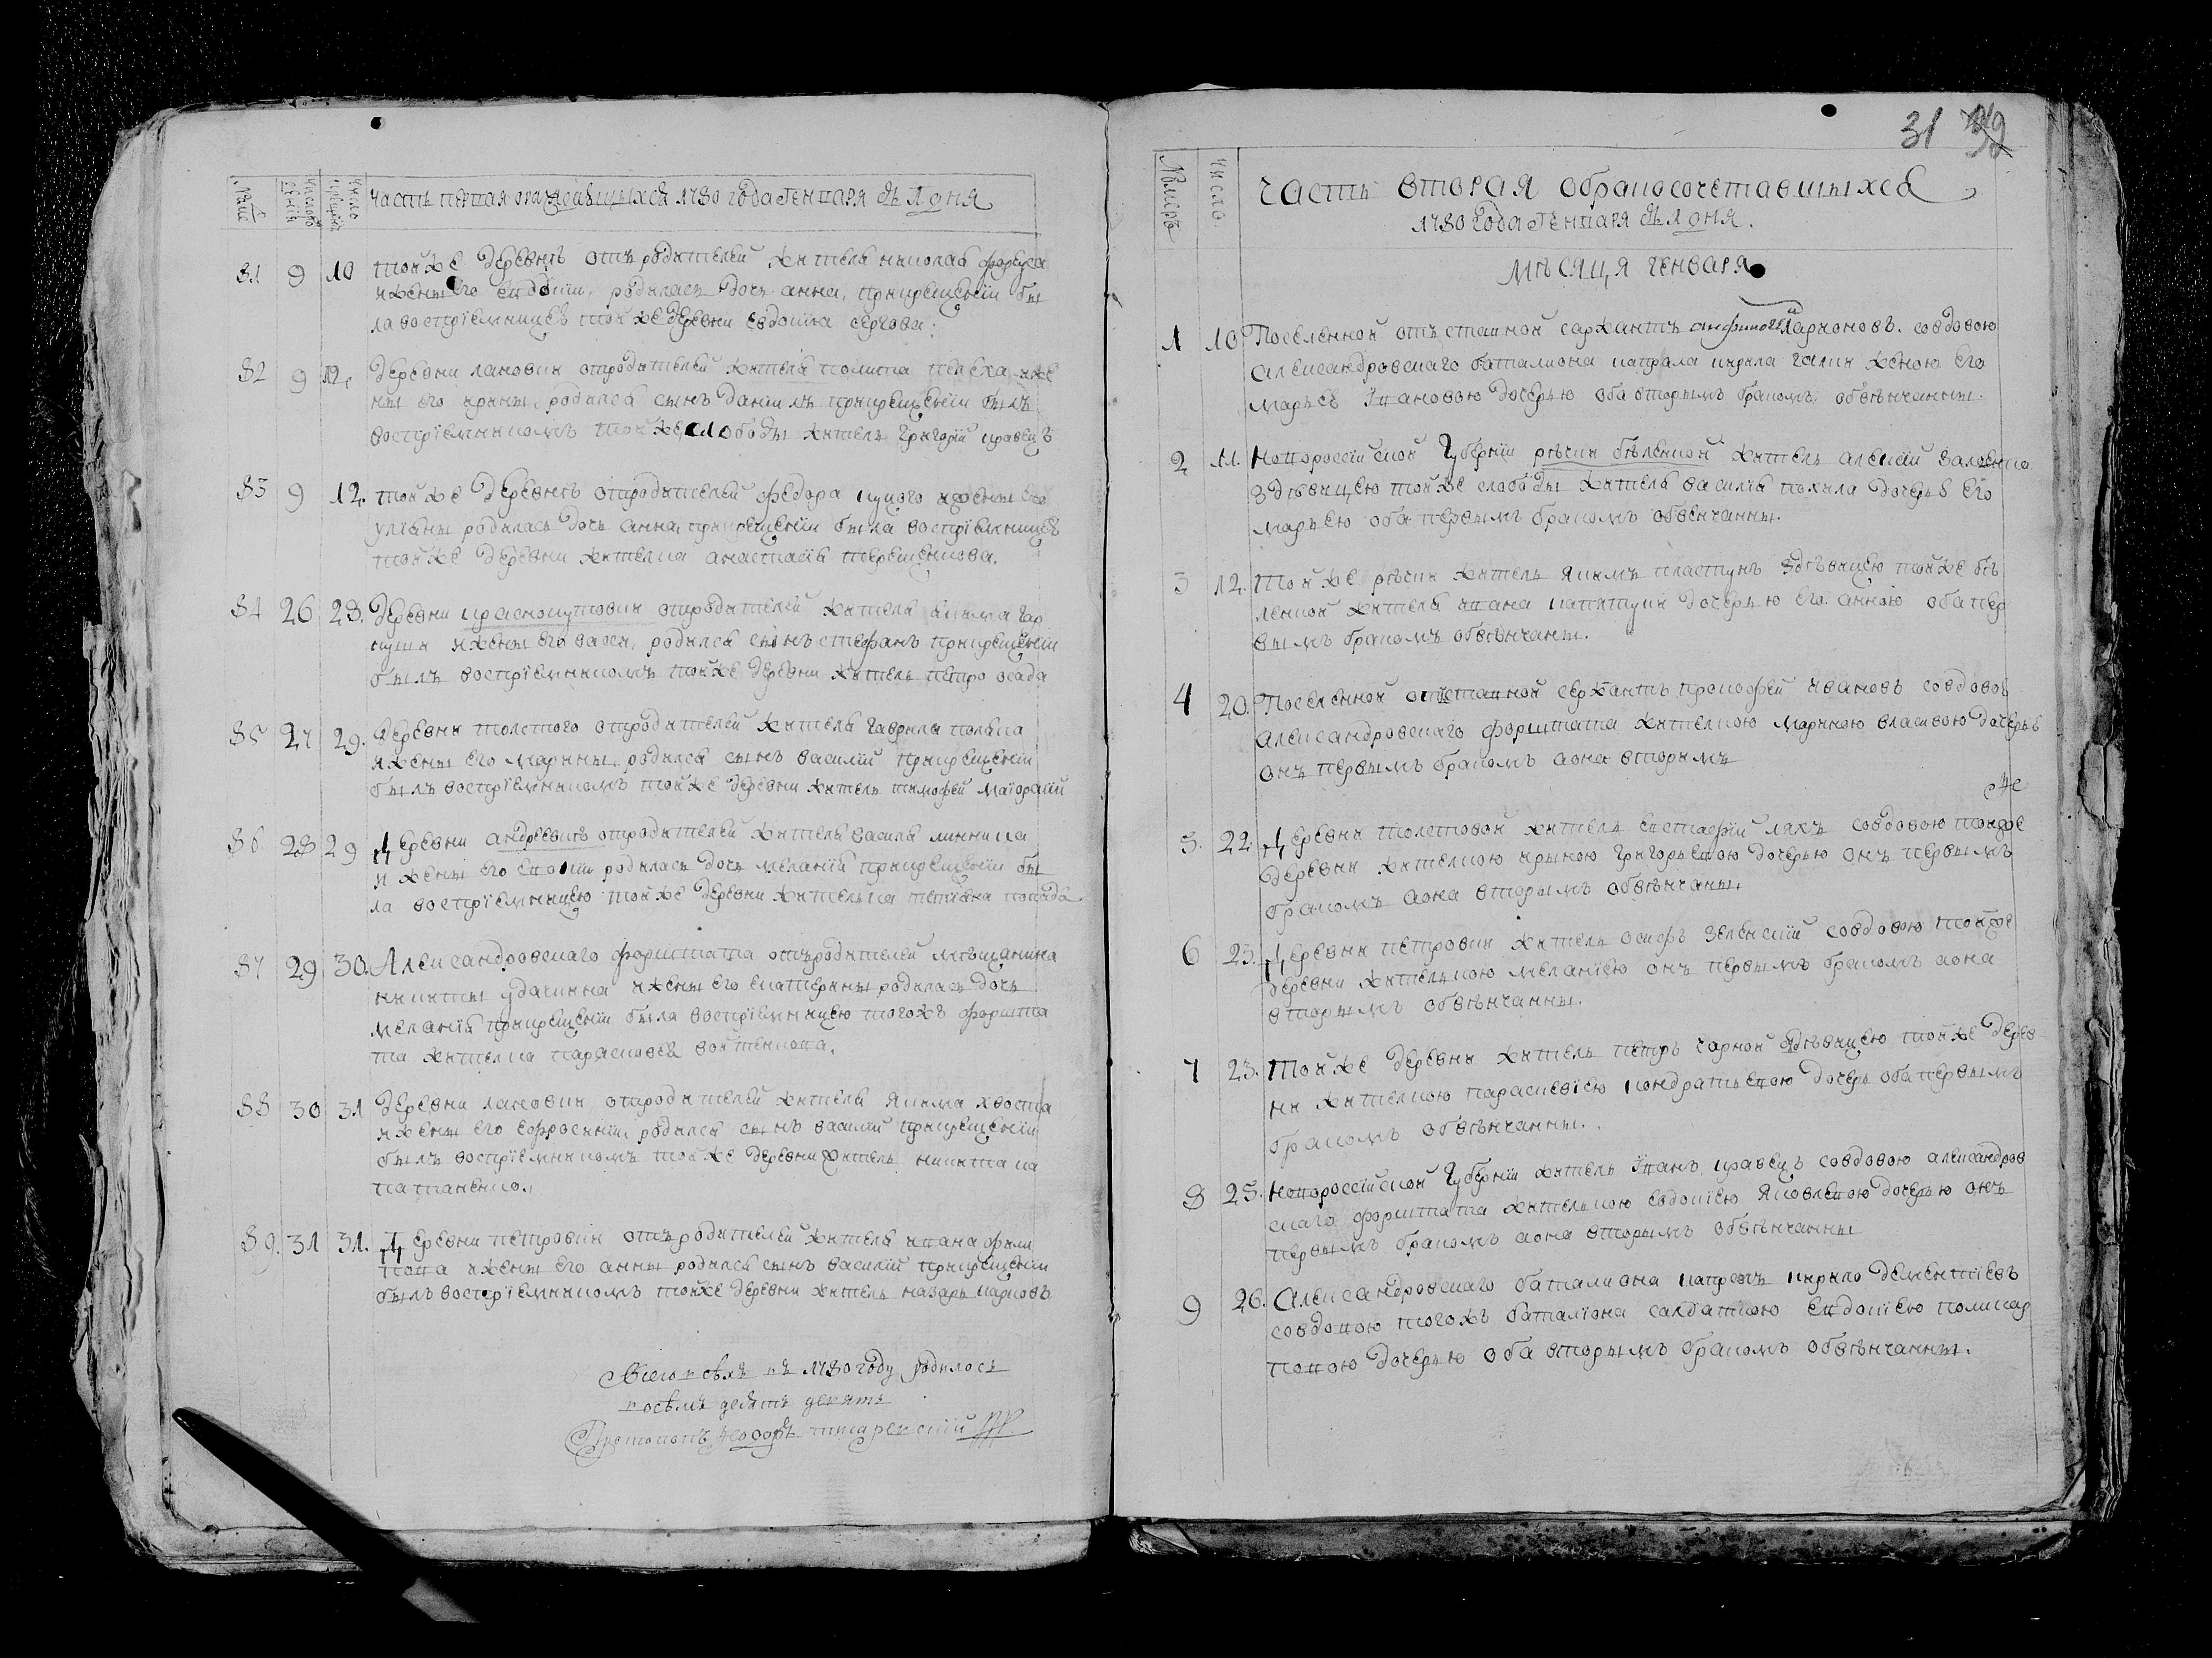 часть первая о родившихся 1780 года Генваря съ 1 дня
81 9 10 той же деревнѣ отъ родителей жителя николая
и жены его евдокіи, родилась дочь анна, при крещеніи бы
ла воспріемницею той же деревни евдокіа
82 9 12 деревни лановки от родителей жителя
ны его ирины, родился сынъ даніилъ при крещеніи былъ
воспріемникомъ той же слободы житель григорій кравецъ
83 9 12. той же деревнѣ от родителей федора куцого и жены его
уліяны родилась дочь анна, при крещеніи была воспріемницею
той же деревни жителка анастасія терещенкова.
84 26 28. деревни краснокутовки от родителей жителя якима
и жены его родился сынъ стефанъ при крещеніи
былъ воспріемникомъ той же деревни житель петро осада
85 27 29. деревни толстого от родителей жителя гаврила
и жены его марины, родился сынъ василій при крещеніи
былъ воспріемникомъ той же деревни житель тимофей
86 28 29 деревни андреевкѣ от родителей жителя василя линника
и жены его родилась дочь меланія при крещеніи бы
ла воспріемницею той же деревни жителка
87 29 30. Александровскаго форштата отъ родителей мѣщанина
никиты удачина и жены его екатерины родилась дочь
меланія при крещеніи была воспріемницею того жъ форшта
та жителка параскевія войтенкова.
88 30 31 деревни лановки от родителей жителя якима хвоста
и жены его ефросиніи, родился сынъ василій при крещеніи
былъ воспріемникомъ той же деревни житель никита

89. 31 31. деревни петровки отъ родителей жителя ивана фили
пова и жены его анны родился сынъ василій при крещеніи
былъ воспріемникомъ той же деревни житель назаръ карповъ
Всего въ 1780 году родилось
восемъ десятъ девять
Протопопъ
31
Номеръ число
Часть вторая о бракосочетавшихся
1780 года Генваря съ 1 дня.
мѣсяця генваря
1 10 Поселенной отъставной саржантъ Ларионовъ. со вдовою
александровскаго баталиона капрала кирила галки женою его
марьею Ивановою дочерью оба вторымъ бракомъ обвѣнчанны.
2 11. Новороссійской Губерніи рѣчки бѣленкой житель алексій
з дѣвицею той же слободы жителя василія дочерью его
марьею оба первымъ бракомъ обвенчанны.
3 12. Той же рѣчки житель якимъ пластунъ з дѣвицею той же бѣ
ленкой жителя ивана дочерью его анною оба пер
вымъ бракомъ обвѣнчаны.
4 20. Поселенной отъставной сержантъ прокофей ивановъ со вдовою
Александровскаго форштата жителкою мариною власовою дочерью
онъ первымъ бракомъ а она вторимъ
5. 22. деревни толстовой житель евстафій ляхъ со вдовою той же
деревни жителкою ириною григорьевою дочерью онъ первымъ
бракомъ а она вторымъ обвѣнчаны.
6 23. деревни петровки житель осифъ зеленскій со вдовою той же
деревни жителкою меланією онъ первымъ бракомъ а она
вторымъ обвѣнчанны.
7 23. Той же деревни житель петръ чорной з дѣвицею той же дерев
ни жителкою параскевією кондратьевою дочерь оба первымъ
бракомъ обвѣнчанны.
8 25. Новороссійской Губерніи житель Иванъ кравецъ со вдовою александров
скаго форштата жителкою евдокією яковлевою дочерью онъ
первымъ бракомъ а она вторымъ обвѣнчанны
9 26. Александровскаго баталиона капралъ кирило дементіевъ
со вдовою того жъ баталіона салдаткою евдокією поликар
повою дочерью оба вторымъ бракомъ обвѣнчанны.